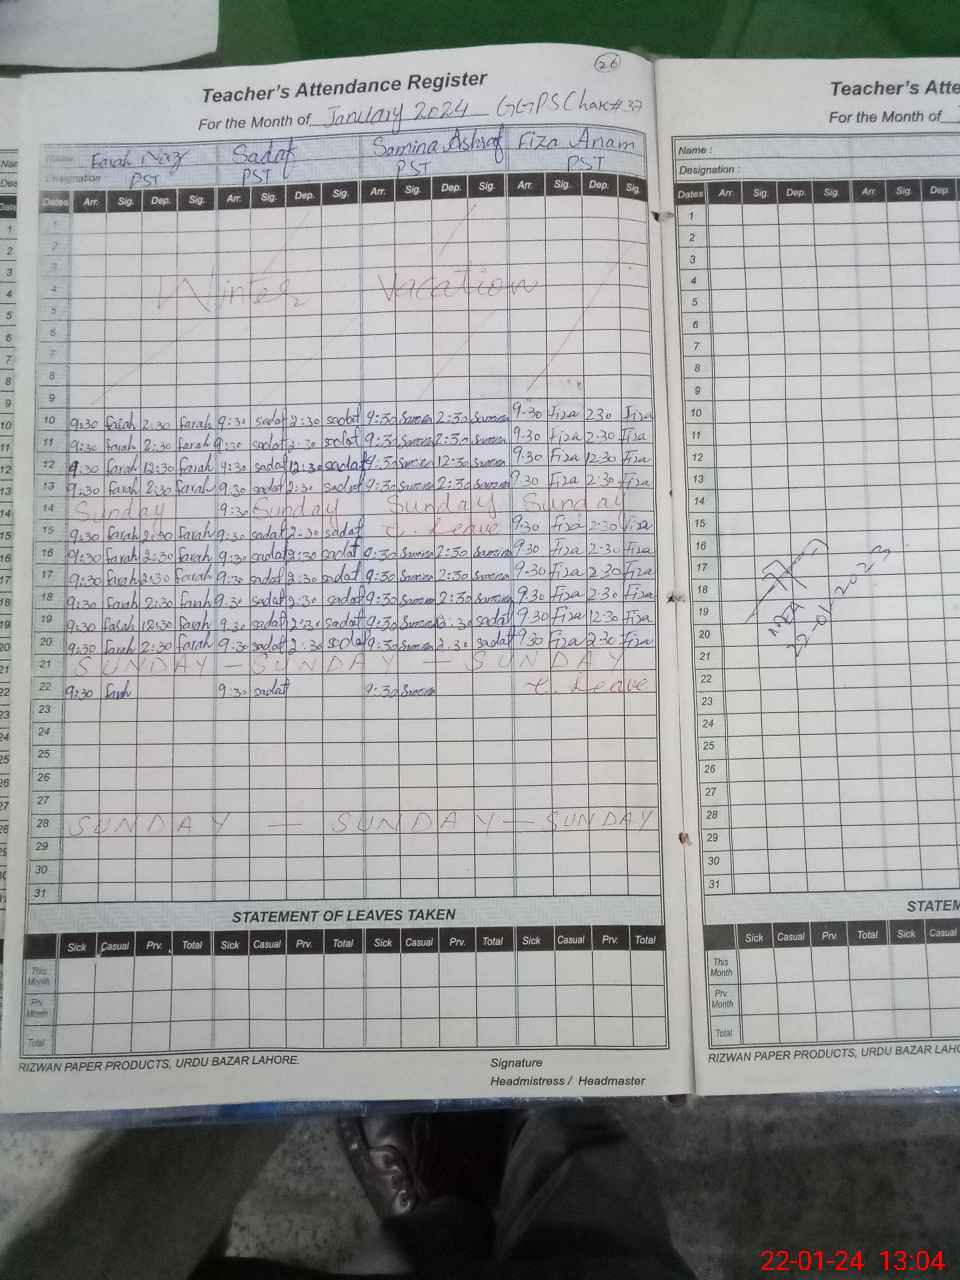 26
Teacher's Attendance Register
For the Month of January 2024 GGPS Chak # 37
Name : Farah Naz Sadaf Samina Ashraf Fiza Anam
Designation PST PST PST PST
Dates Arr. Sig. Dep. Sig. Arr. Sig. Dep. Sig. Arr. Sig. Dep. Sig. Arr. Sig. Dep. Sig.
1
2
3
4 Winter Vacation
5
6
7
8
9
10 9:30 farah 2:30 farah 9:30 sadaf 2:30 sadaf 9:30 Samina 2:30 Samina 9-30 Fiza 2-30 Fiza
11 9:30 farah 2:30 farah 9:30 sadaf 2:30 sadaf 9:30 Samina 2:30 Samina 9-30 Fiza 2-30 Fiza
12 9:30 farah 12:30 farah 9:30 sadaf 12:30 sadaf 9:30 Samina 12:30 Samina 9.30 Fiza 12-30 Fiza
13 9:30 farah 2:30 farah 9:30 sadaf 2:30 sadaf 9:30 Samina 2:30 Samina 9.30 Fiza 2-30 Fiza
14 Sunday 9:30 Sunday Sunday Sunday
15 9:30 farah 2:30 farah 9:30 sadaf 2:30 sadaf C. Leave 9-30 Fiza 2-30 Fiza
16 9:30 farah 2:30 farah 9:30 sadaf 2:30 sadaf 9:30 Samina 2:30 Samina 9.30 Fiza 2-30 Fiza
17 9:30 farah 2:30 farah 9:30 sadaf 2:30 sadaf 9:30 Samina 2:30 Samina 9-30 Fiza 2.30 Fiza
18 9:30 farah 2:30 farah 9:30 sadaf 2:30 sadaf 9:30 Samina 2:30 Samina 9.30 Fiza 2-30 Fiza
19 9:30 farah 12:30 farah 9:30 sadaf 12:30 sadaf 9:30 Samina 12:30 sadaf 9.30 Fiza 12-30 Fiza
20 9:30 farah 2:30 farah 9:30 sadaf 2:30 sadaf 9:30 Samina 2:30 sadaf 9.30 Fiza 2-30 Fiza
21 SUNDAY - SUNDAY - SUNDAY
22 9:30 farah 9:30 sadaf 9:30 Samina C. Leave
23
24
25
26
27
28 SUNDAY - SUNDAY - SUNDAY
29
30
31
STATEMENT OF LEAVES TAKEN
Sick Casual Prv. Total Sick Casual Prv. Total Sick Casual Prv. Total Sick Casual Prv. Total
This Month
Prv. Month
Total
RIZWAN PAPER PRODUCTS, URDU BAZAR LAHORE.
Signature
Headmistress / Headmaster
Teacher's Atte
For the Month of
Name :
Designation :
Dates Arr. Sig. Dep. Sig. Arr. Sig. Dep.
1
2
3
4
5
6
7
8
9
10
11
12
13
14
15
16
17
18
19
20
21
22
23
24
25
26
27
28
29
30
31
22-01-2023
STATEM
Sick Casual Prv. Total Sick Casual
This Month
Prv. Month
Total
RIZWAN PAPER PRODUCTS, URDU BAZAR LAHO
22-01-24 13:04